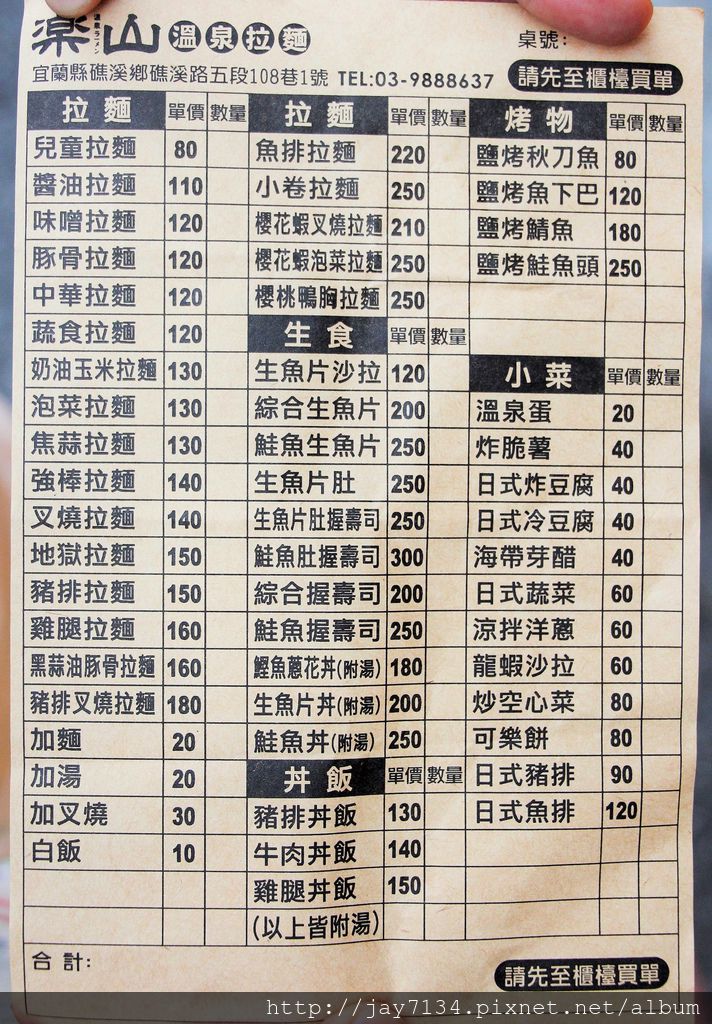 楽山 溫泉拉麵
溫泉ラーメン
桌號:
宜蘭縣礁溪鄉礁溪路五段108巷1號 TEL:03-9888637
請先至櫃檯買單
拉麵 單價 數量
兒童拉麵 80
醬油拉麵 110
味噌拉麵 120
豚骨拉麵 120
中華拉麵 120
蔬食拉麵 120
奶油玉米拉麵 130
泡菜拉麵 130
焦蒜拉麵 130
強棒拉麵 140
叉燒拉麵 140
地獄拉麵 150
豬排拉麵 150
雞腿拉麵 160
黑蒜油豚骨拉麵 160
豬排叉燒拉麵 180
加麵 20
加湯 20
加叉燒 30
白飯 10
拉麵 單價 數量
魚排拉麵 220
小卷拉麵 250
櫻花蝦叉燒拉麵 210
櫻花蝦泡菜拉麵 250
櫻桃鴨胸拉麵 250
生食 單價 數量
生魚片沙拉 120
綜合生魚片 200
鮭魚生魚片 250
生魚片肚 250
生魚片肚握壽司 250
鮭魚肚握壽司 300
綜合握壽司 200
鮭魚握壽司 250
鰹魚蔥花丼(附湯) 180
生魚片丼(附湯) 200
鮭魚丼(附湯) 250
丼飯 單價 數量
豬排丼飯 130
牛肉丼飯 140
雞腿丼飯 150
(以上皆附湯)
烤物 單價 數量
鹽烤秋刀魚 80
鹽烤魚下巴 120
鹽烤鯖魚 180
鹽烤鮭魚頭 250
小菜 單價 數量
溫泉蛋 20
炸脆薯 40
日式炸豆腐 40
日式冷豆腐 40
海帶芽醋 40
日式蔬菜 60
涼拌洋蔥 60
龍蝦沙拉 60
炒空心菜 80
可樂餅 80
日式豬排 90
日式魚排 120
合計:
請先至櫃檯買單
http://jay7134.pixnet.net/album